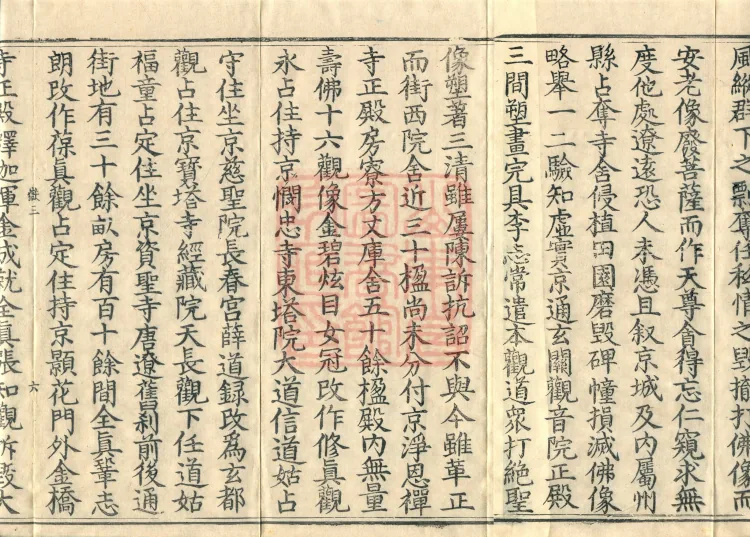 風縱群下之
安老像廢菩薩而作天尊貪得忘仁窺求無
度他處遼遠恐人未憑且叙京城及内屬州
縣占奪寺舍侵植田園磨毀碑幢損滅佛像
略舉一二驗知虛實京通玄關觀音院正殿
三間塑畫完具李志常遣本觀道衆打絶聖
像塑著三清雖屢陳訴抗詔不與今雖革正
而街西院舍近三十楹尚未分付京淨恩禪
寺正殿房寮方丈庫舍五十餘楹殿内無量
壽佛十六觀像金碧炫目女冠改作修眞觀
永占住持京憫忠寺東塔院大道信道姑占
守住坐京慈聖院長春宮薛道録改爲玄都
觀占住京寶塔寺經藏院天長觀下任道姑
福童占定住坐京資聖寺唐遼舊刹前後通
街地有三十餘畝房有百十餘間全眞鞏志
朗改作葆眞觀占定住持京顯花門外金橋
徽三
六
寺正殿釋迦渾金成就全眞張知觀